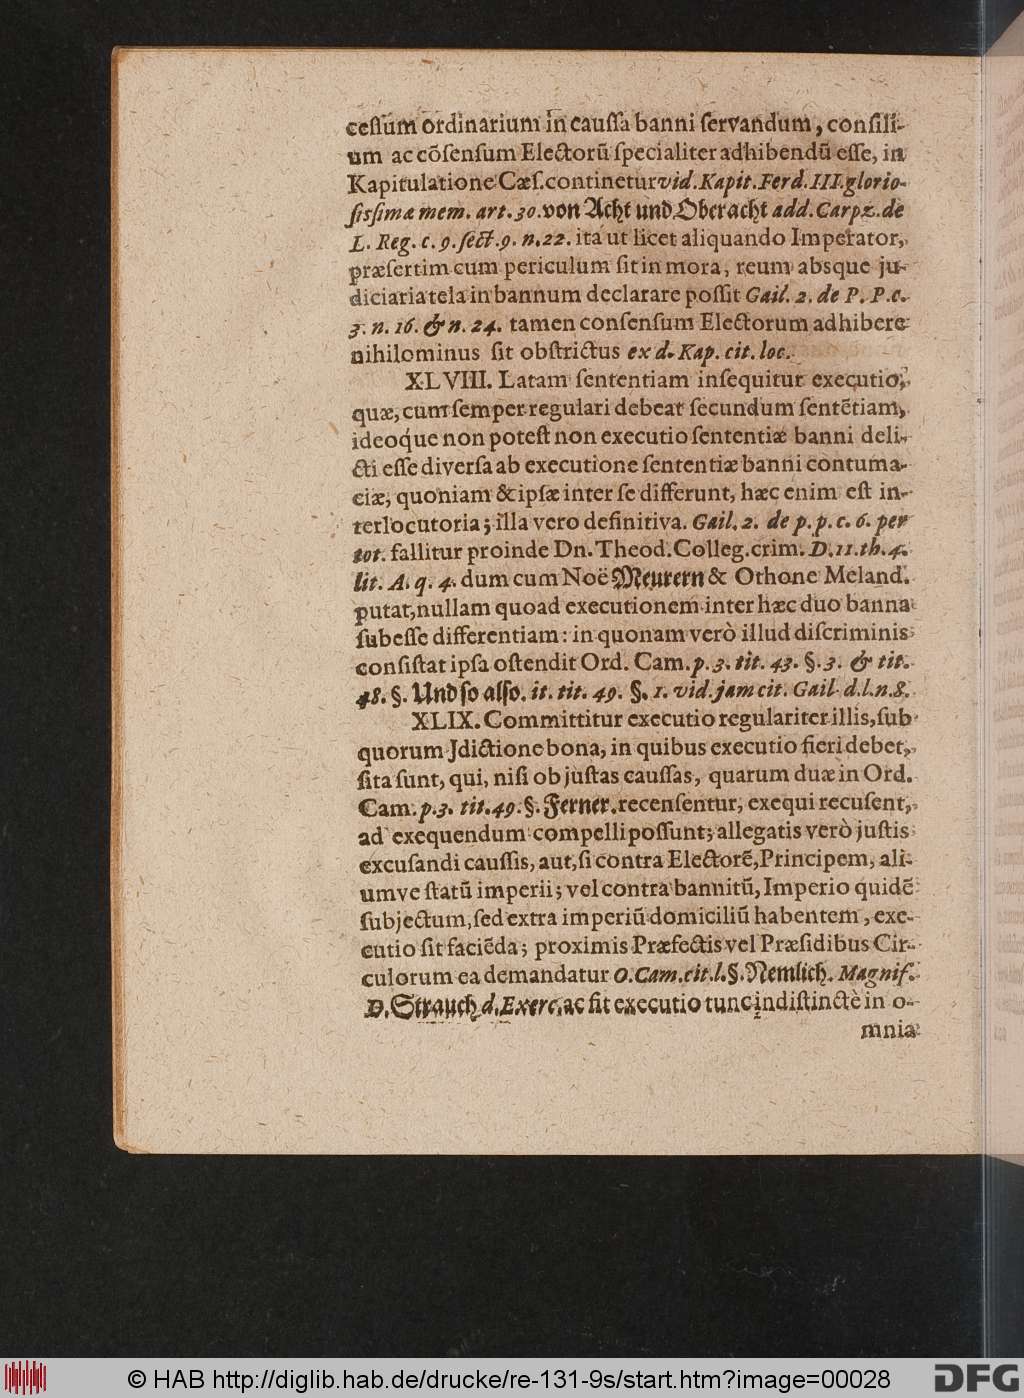 cessum ordinarium in caussa banni servandum, consili-
um ac cõsensum Electorũ specialiter adhibendũ esse, in
Kapitulatione Cæs. continetur vid. Kapit. Ferd. III. glorio-
sissimæ mem. art. 30. von Acht und Oberacht add. Carpz. de
L. Reg. c. 9. sect. 9. n. 22. ita ut licet aliquando Imperator,
præsertim cum periculum sit in mora, reum absque ju-
diciaria tela in bannum declarare possit Gail. 2. de P. P. c.
3. n. 16. & n. 24. tamen consensum Electorum adhibere
nihilominus sit obstrictus ex d. Kap. cit. loc.
XLVIII. Latam sententiam insequitur executio,
quæ, cum semper regulari debeat secundum sentẽtiam,
ideoq́ue non potest non executio sententiæ banni deli-
cti esse diversa ab executione sententiæ banni contuma-
ciæ, quoniam & ipsæ inter se differunt, hæc enim est in-
terlocutoria; illa vero definitiva. Gail. 2. de p. p. c. 6. per
tot. fallitur proinde Dn. Theod. Colleg. crim. D. 11. th. 4.
lit. A. q. 4. dum cum Noë Meurern & Othone Meland.
putat, nullam quoad executionem inter hæc duo banna
subesse differentiam: in quonam verò illud discriminis
consistat ipsa ostendit Ord. Cam. p. 3. tit. 43. §. 3. & tit.
48. §. Und so also. it. tit. 49. §. 1. vid. jam cit. Gail d. l. n. 8.
XLIX. Committitur executio regulariter illis, sub
quorum Jdictione bona, in quibus executio fieri debet,
sita sunt, qui, nisi ob justas caussas, quarum duæ in Ord.
Cam. p. 3. tit. 49. §. Ferner. recensentur, exequi recusent,
ad exequendum compelli possunt; allegatis verò justis
excusandi caussis, aut, si contra Electorẽ, Principem, ali-
umve statũ imperii; vel contra bannitũ, Imperio quidẽ
subjectum, sed extra imperiũ domiciliũ habentem, exe-
cutio sit faciẽda; proximis Præfectis vel Præsidibus Cir-
culorum ea demandatur O. Cam. cit. l. §. Nemlich. Magnif.
D. Strauch d. Exerc. ac fit executio tunc indistinctè in o-
mnia
© HAB http://diglib.hab.de/drucke/re-131-9s/start.htm?image=00028
DFG